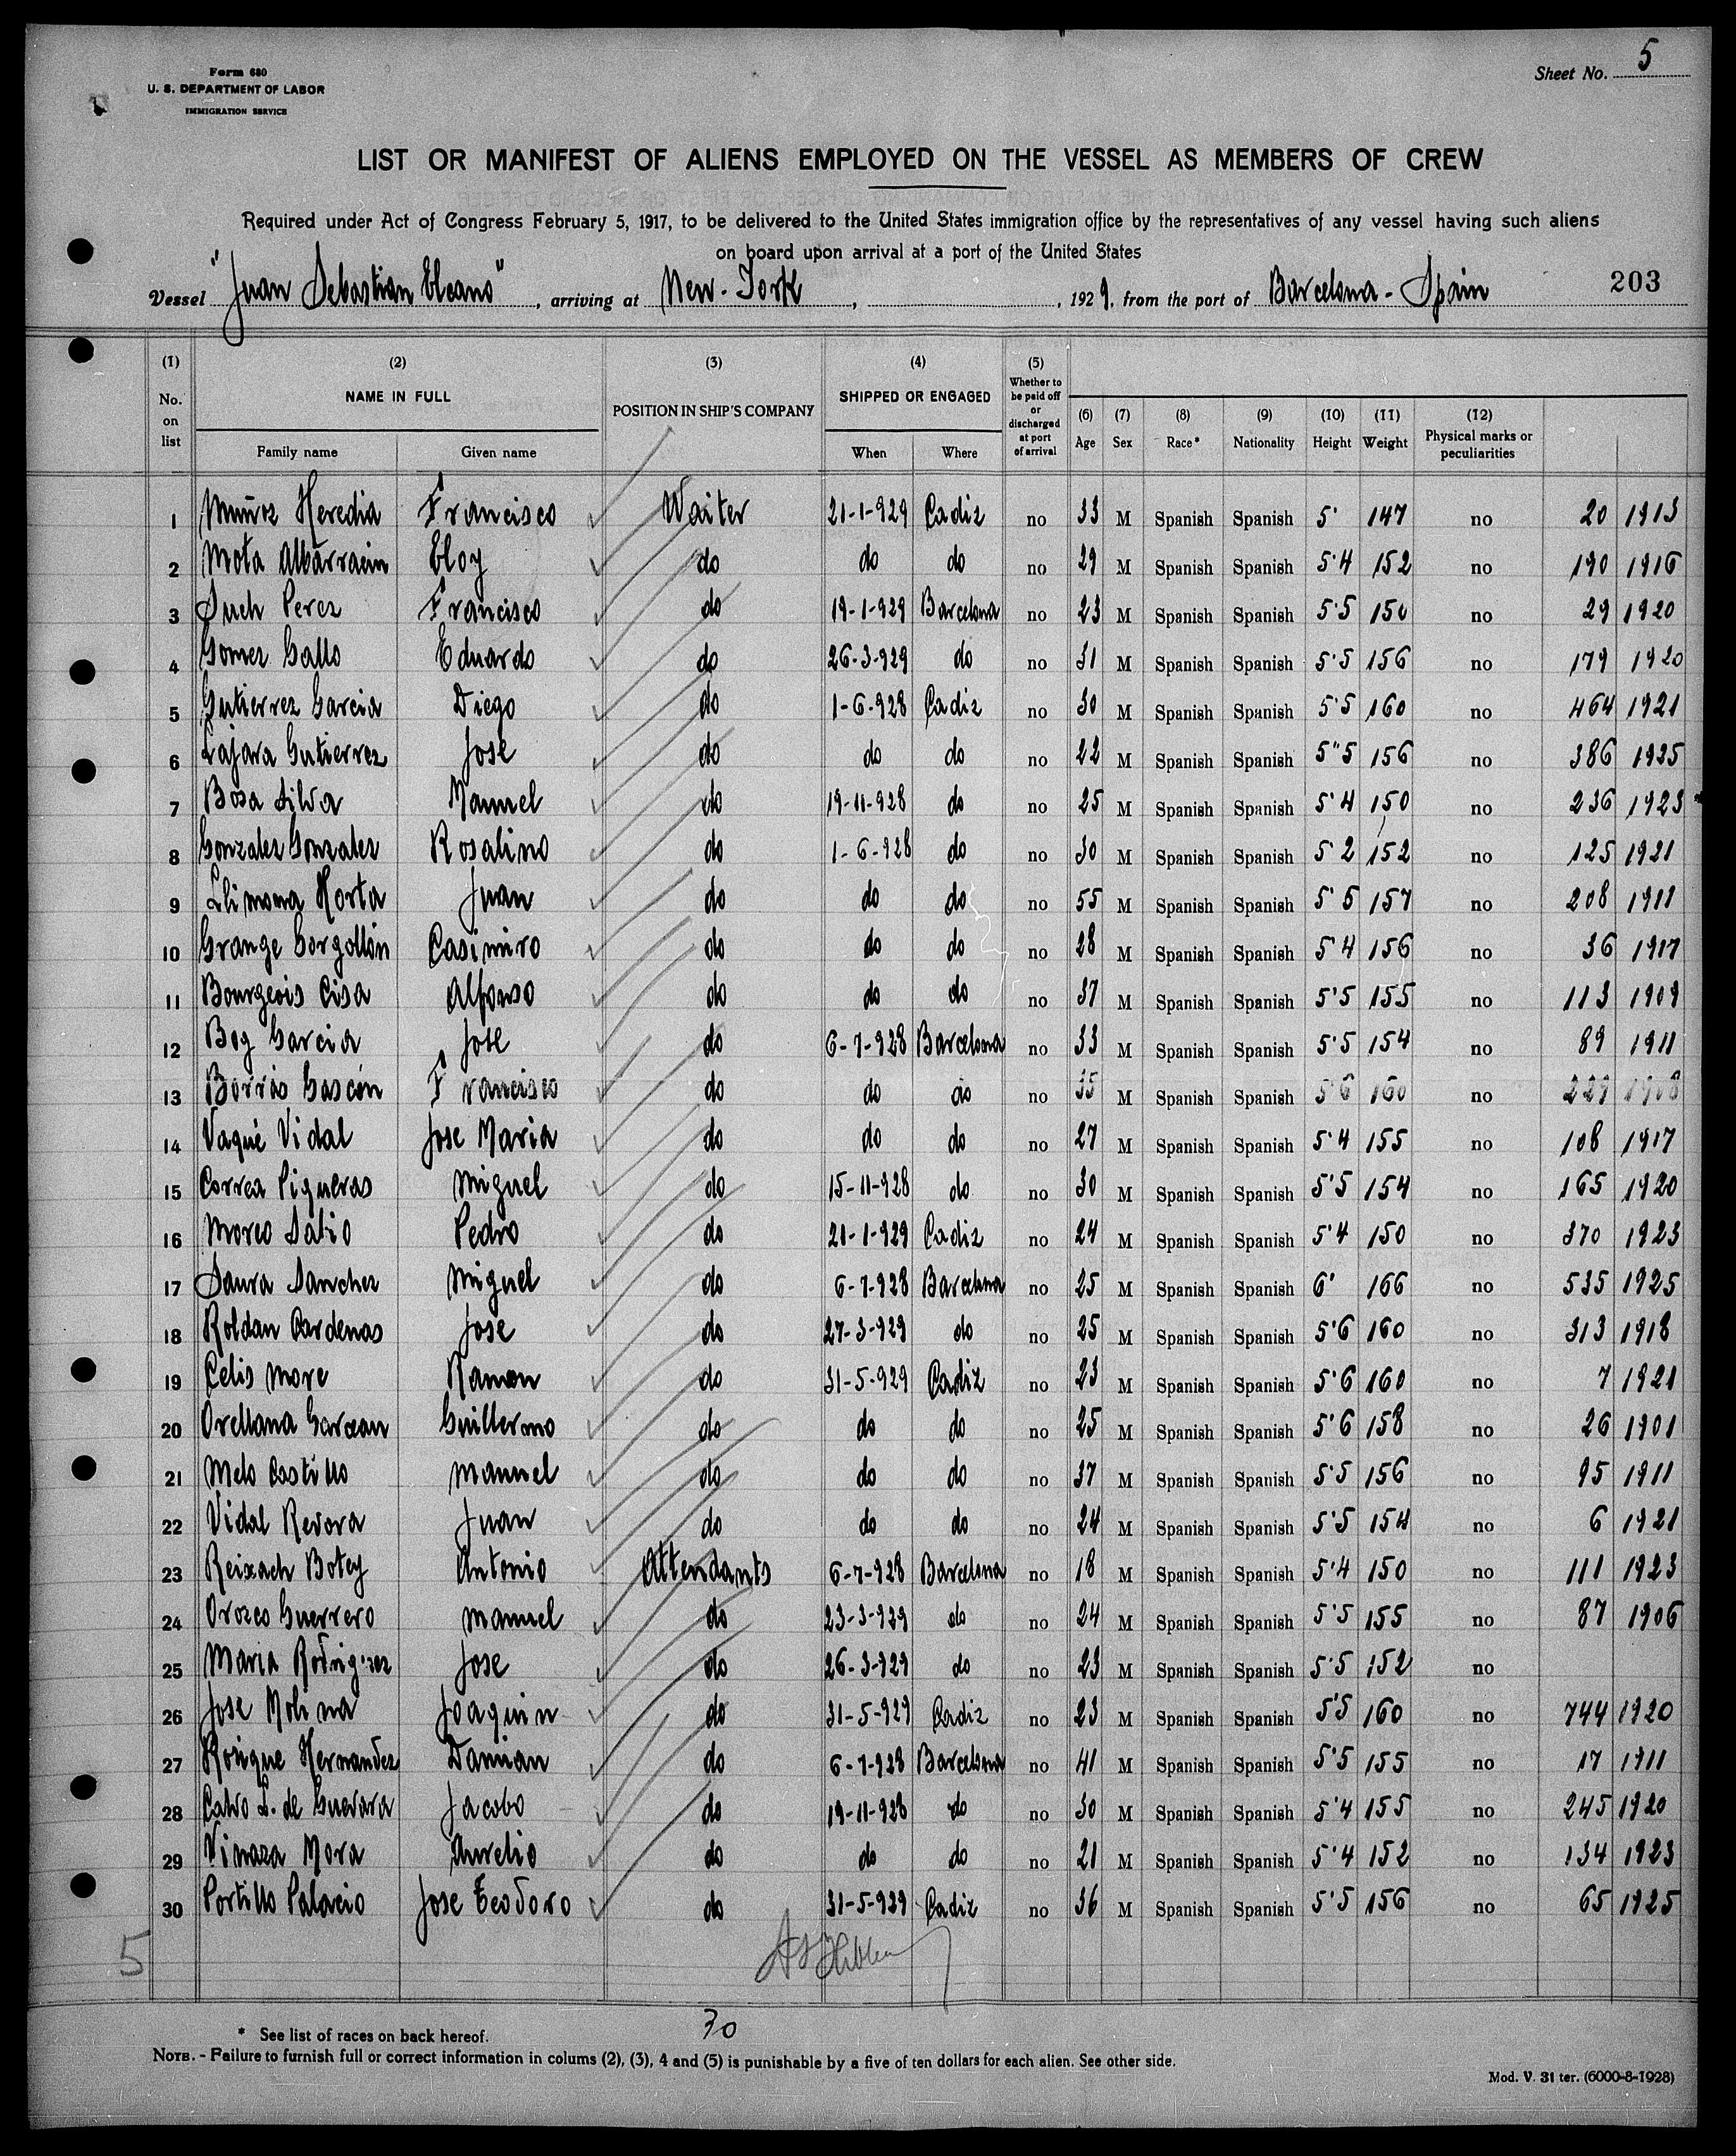 Form 680
U. S. DEPARTMENT OF LABOR
IMMIGRATION SERVICE
Sheet No. 5
LIST OR MANIFEST OF ALIENS EMPLOYED ON THE VESSEL AS MEMBERS OF CREW
Required under Act of Congress February 5, 1917, to be delivered to the United States immigration office by the representatives of any vessel having such aliens
on board upon arrival at a port of the United States
Vessel "Juan Sebastian Elcano", arriving at New-York, , 1929, from the port of Barcelona - Spain 203
(1) No. on list
(2) NAME IN FULL Family name Given name
(3) POSITION IN SHIP'S COMPANY
(4) SHIPPED OR ENGAGED When Where
(5) Whether to be paid off or discharged at port of arrival
(6) Age (7) Sex (8) Race* (9) Nationality (10) Height (11) Weight (12) Physical marks or peculiarities
1 Muñoz Heredia Francisco Waiter 21-1-929 Cadiz no 33 M Spanish Spanish 5' 147 no 20 1913
2 Mota Albarracin Eloy do do do no 29 M Spanish Spanish 5'4 152 no 190 1916
3 Such Perez Francisco do 19-1-929 Barcelona no 23 M Spanish Spanish 5'5 150 no 29 1920
4 Gomez Gallo Eduardo do 26-3-929 do no 31 M Spanish Spanish 5'5 156 no 179 1920
5 Gutierrez Garcia Diego do 1-6-928 Cadiz no 30 M Spanish Spanish 5'5 160 no 464 1921
6 Lajara Gutierrez Jose do do do no 22 M Spanish Spanish 5"5 156 no 386 1925
7 Bosa Silva Manuel do 19-11-928 do no 25 M Spanish Spanish 5'4 150 no 236 1923
8 Gonzalez Gonzalez Rosalino do 1-6-928 do no 30 M Spanish Spanish 5'2 152 no 125 1921
9 Llimona Horta Juan do do do no 55 M Spanish Spanish 5'5 157 no 208 1911
10 Grange Gorgollón Casimiro do do do no 28 M Spanish Spanish 5'4 156 no 36 1917
11 Bourgeois Cisa Alfonso do do do no 37 M Spanish Spanish 5'5 155 no 113 1909
12 Boy Garcia Jose do 6-7-928 Barcelona no 33 M Spanish Spanish 5'5 154 no 89 1911
13 Borrás Gascón Francisco do do do no 35 M Spanish Spanish 5'6 160 no 229 1908
14 Vaqué Vidal Jose Maria do do do no 27 M Spanish Spanish 5'4 155 no 108 1917
15 Correa Piqueras Miguel do 15-11-928 do no 30 M Spanish Spanish 5'5 154 no 165 1920
16 Morco Satio Pedro do 21-1-929 Cadiz no 24 M Spanish Spanish 5'4 150 no 370 1923
17 Saura Sanchez Miguel do 6-7-928 Barcelona no 25 M Spanish Spanish 6' 166 no 535 1925
18 Roldan Cardenas Jose do 27-3-929 do no 25 M Spanish Spanish 5'6 160 no 313 1918
19 Celis More Ramon do 31-5-929 Cadiz no 23 M Spanish Spanish 5'6 160 no 7 1921
20 Orellana Guillermo do do do no 25 M Spanish Spanish 5'6 158 no 26 1901
21 Melo Castillo Manuel do do do no 37 M Spanish Spanish 5'5 156 no 95 1911
22 Vidal Revora Juan do do do no 24 M Spanish Spanish 5'5 154 no 6 1921
23 Reixach Botey Antonio Attendants 6-7-928 Barcelona no 18 M Spanish Spanish 5'4 150 no 111 1923
24 Orozco Guerrero Manuel do 23-3-929 do no 24 M Spanish Spanish 5'5 155 no 87 1906
25 Maria Rodriguez Jose do 26-3-929 do no 23 M Spanish Spanish 5'5 152 no
26 Jose Molina Joaquin do 31-5-929 Cadiz no 23 M Spanish Spanish 5'5 160 no 744 1920
27 Rosique Hernandez Damian do 6-7-928 Barcelona no 41 M Spanish Spanish 5'5 155 no 17 1911
28 Calvo L. de Guevara Jacobo do 19-11-928 do no 30 M Spanish Spanish 5'4 155 no 245 1920
29 Vinaza Mora Aurelio do do do no 21 M Spanish Spanish 5'4 152 no 134 1923
30 Portillo Palacio Jose Teodoro do 31-5-929 Cadiz no 36 M Spanish Spanish 5'5 156 no 65 1925
5
30
* See list of races on back hereof.
NOTE. - Failure to furnish full or correct information in colums (2), (3), 4 and (5) is punishable by a five of ten dollars for each alien. See other side.
Mod. V. 31 ter. (6000-8-1928)